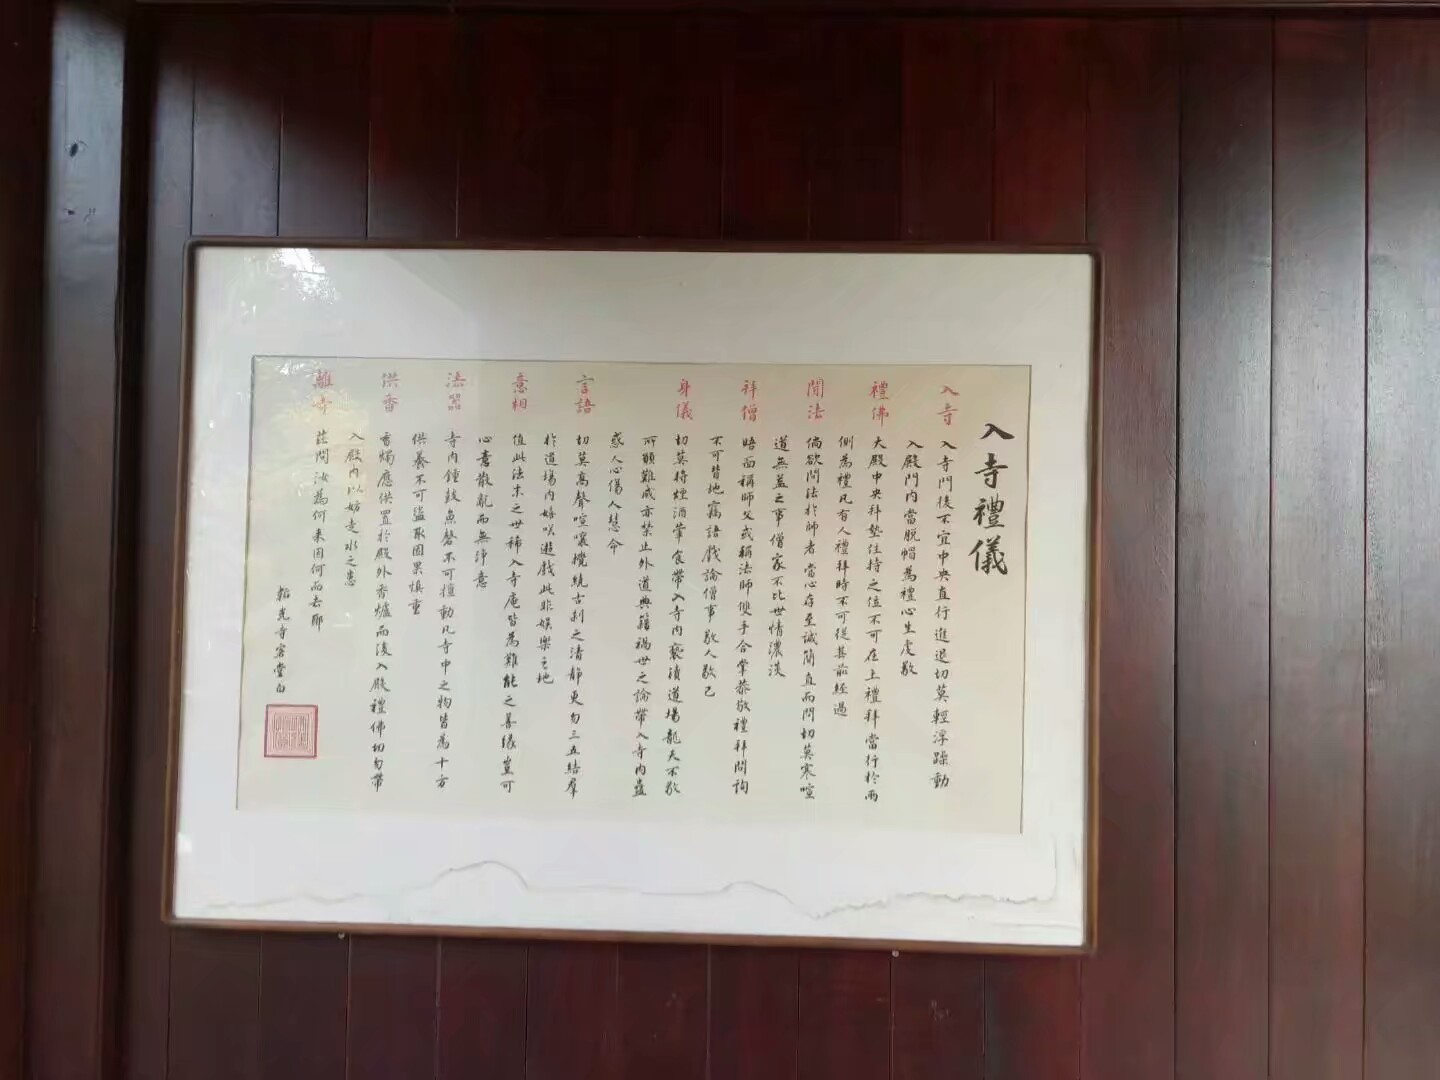 入寺禮儀
入寺
入寺門後不宜中央直行進退切莫輕浮躁動
入殿門內當脫帽為禮心生虔敬
禮佛
大殿中央拜墊住持之位不可在上禮拜當行於兩
側為禮凡有人禮拜時不可從其前經過
聞法
倘欲問法於師者當心存至誠簡直而問切莫寒喧
道無益之事僧家不比世情濃淡
拜僧
晤面稱師父或稱法師雙手合掌恭敬禮拜問詢
不可背地竊語戲論僧事敬人敬己
身儀
切莫將煙酒葷食帶入寺內褻瀆道場龍天不敬
所願難成亦禁止外道典籍禍世之論帶入寺內蠱
惑人心傷人慧命
言語
切莫高聲喧嚷攪繞古刹之清靜更勿三五結羣
於道場內嬉咲遊戲此非娛樂之地
意相
值此法末之世稀入寺庵皆為難能之善緣豈可
心意散亂而無淨意
法器
寺內鐘鼓魚磬不可擅動凡寺中之物皆為十方
供養不可盜取因果慎重
供香
香燭應供置於殿外香爐而後入殿禮佛切勿帶
入殿內以妨走水之患
離寺
茲問汝為何來因何而去耶
韜光寺客堂白